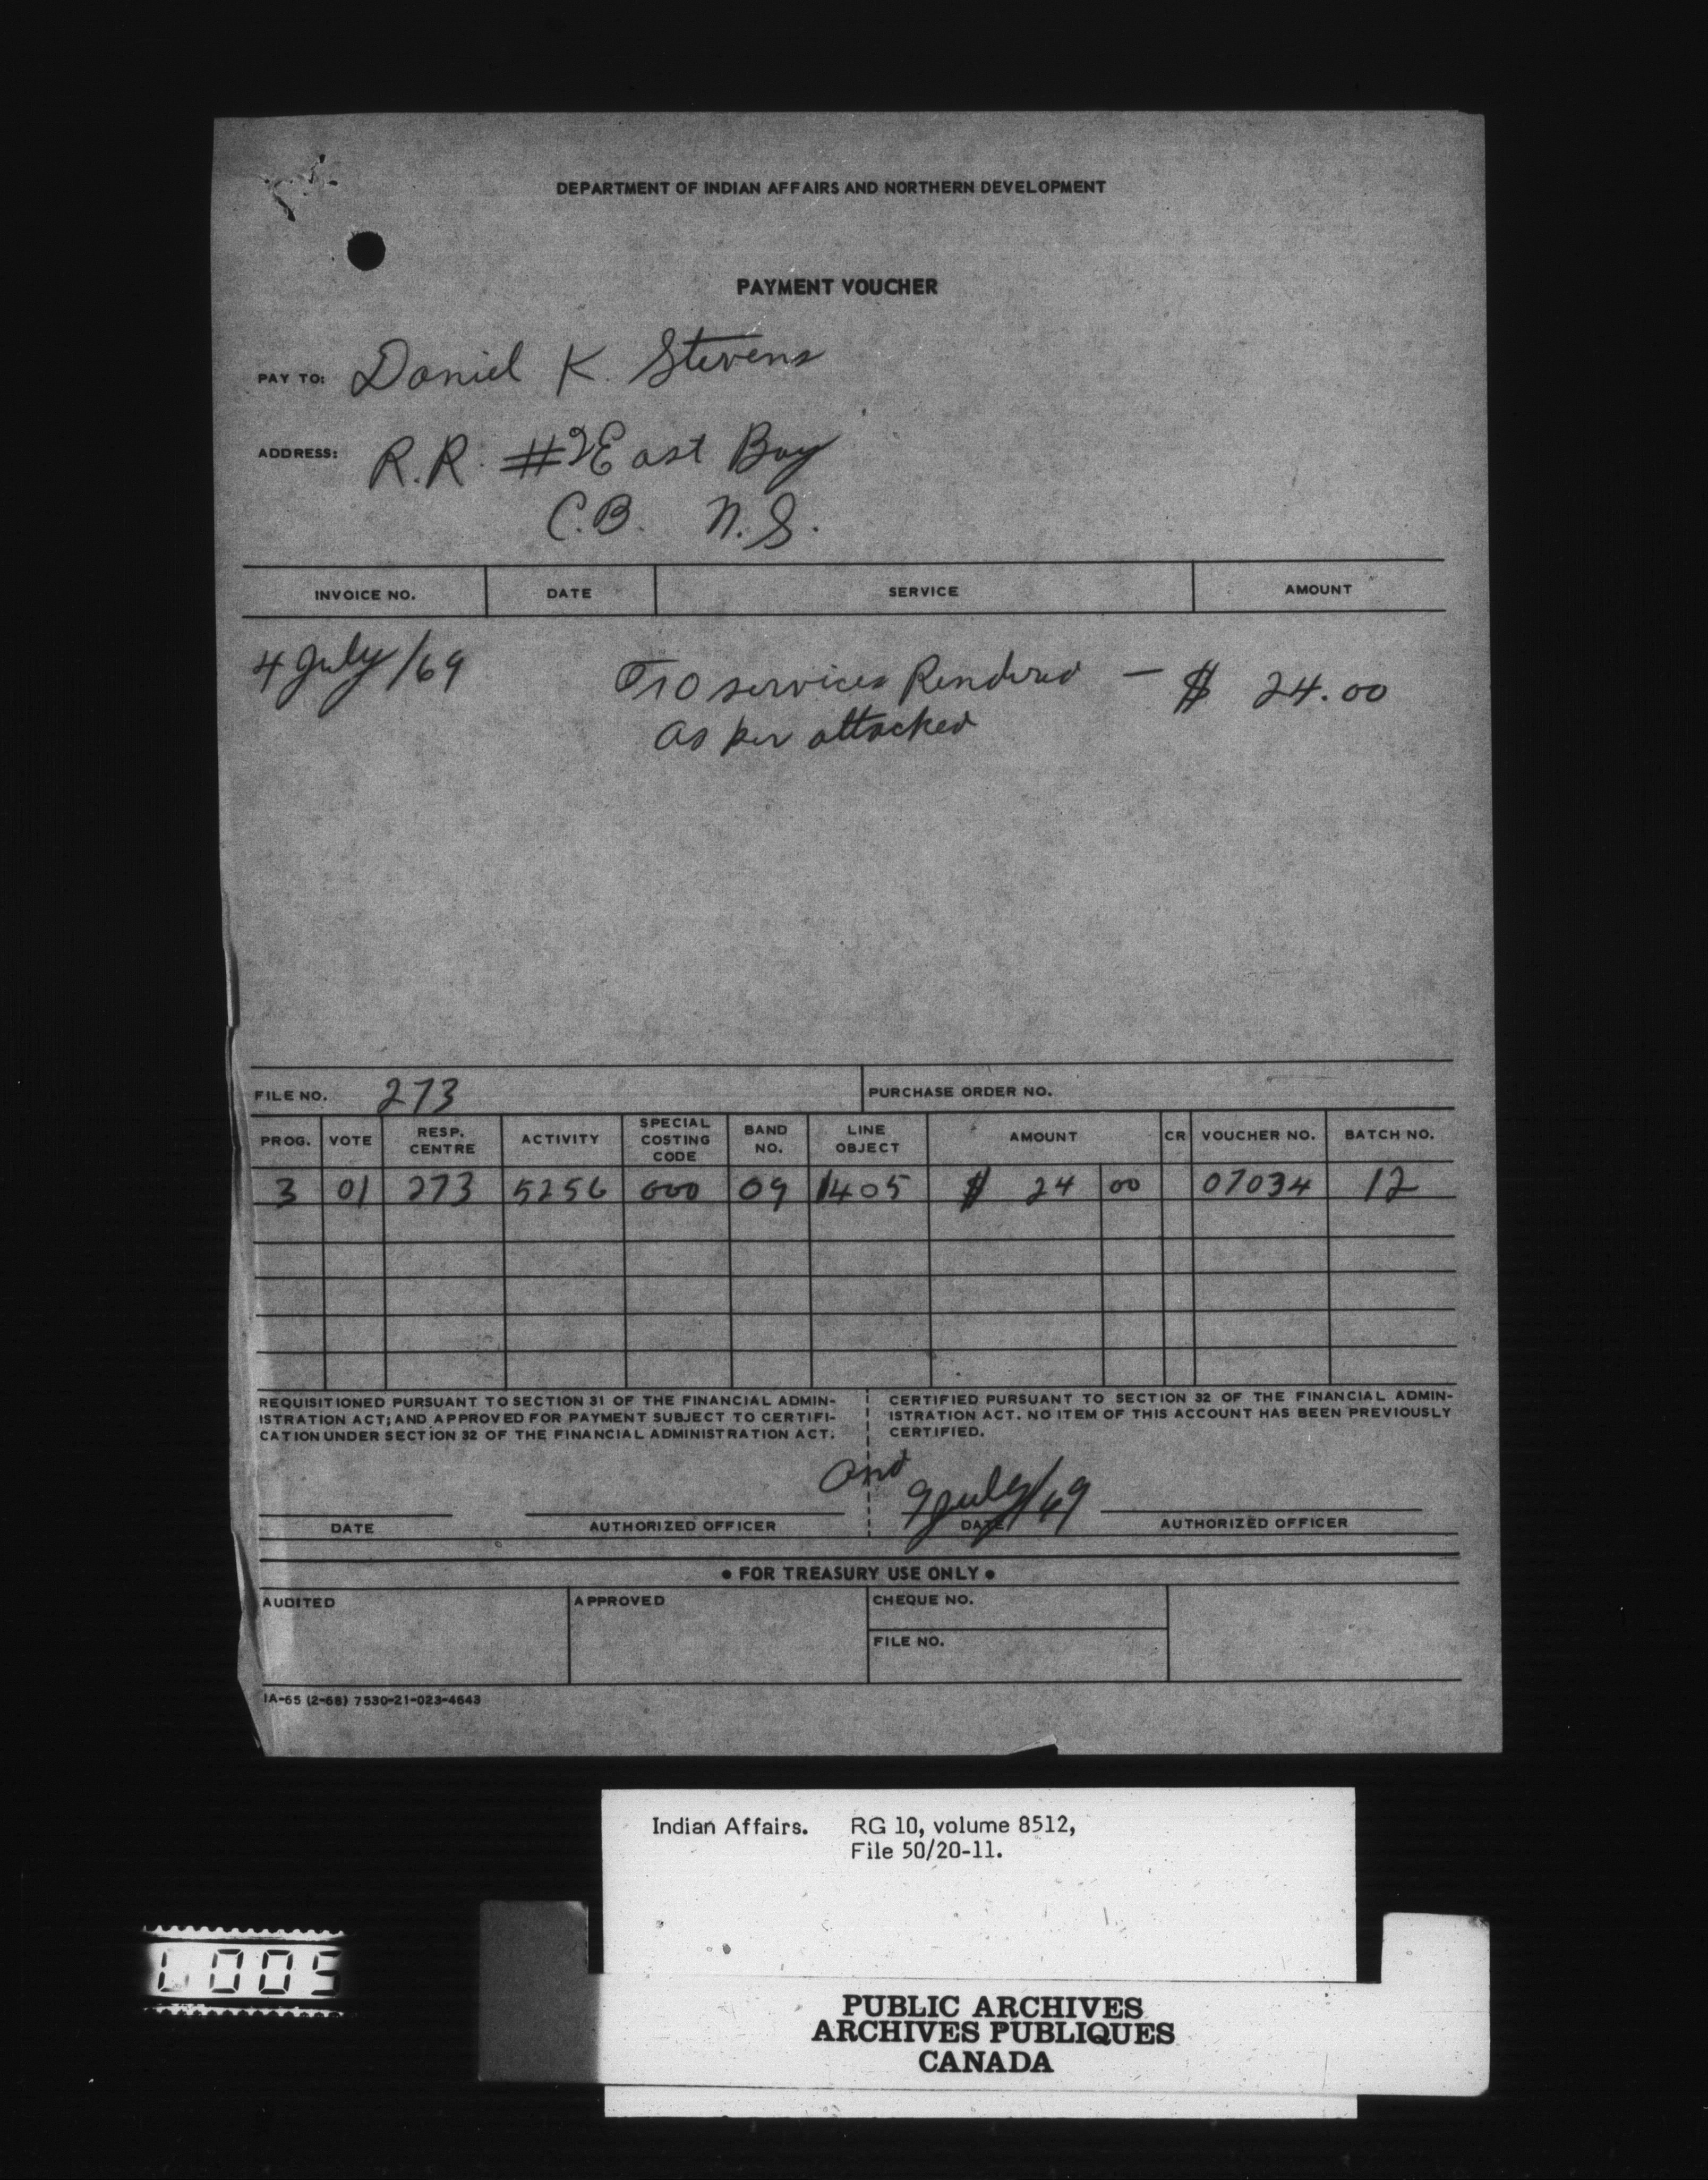 DEPARTMENT OF INDIAN AFFAIRS AND NORTHERN DEVELOPMENT
PAYMENT VOUCHER
PAY TO: Daniel K. Stevens
ADDRESS: R.R. #2 East Bay
C.B. N.S.
INVOICE NO. DATE SERVICE AMOUNT
4 July/69 To services Rendered — $ 24.00
as per attached
FILE NO. 273 PURCHASE ORDER NO.
PROG. VOTE RESP. CENTRE ACTIVITY SPECIAL COSTING CODE BAND NO. LINE OBJECT AMOUNT CR VOUCHER NO. BATCH NO.
3 01 273 5256 000 09 1405 $ 24 00 07034 12
REQUISITIONED PURSUANT TO SECTION 31 OF THE FINANCIAL ADMIN-
ISTRATION ACT; AND APPROVED FOR PAYMENT SUBJECT TO CERTIFI-
CATION UNDER SECTION 32 OF THE FINANCIAL ADMINISTRATION ACT.
CERTIFIED PURSUANT TO SECTION 32 OF THE FINANCIAL ADMIN-
ISTRATION ACT. NO ITEM OF THIS ACCOUNT HAS BEEN PREVIOUSLY
CERTIFIED.
9 July/69
DATE AUTHORIZED OFFICER DATE AUTHORIZED OFFICER
• FOR TREASURY USE ONLY •
AUDITED APPROVED CHEQUE NO.
FILE NO.
IA-65 (2-68) 7530-21-023-4643
Indian Affairs. RG 10, volume 8512,
File 50/20-11.
PUBLIC ARCHIVES
ARCHIVES PUBLIQUES
CANADA